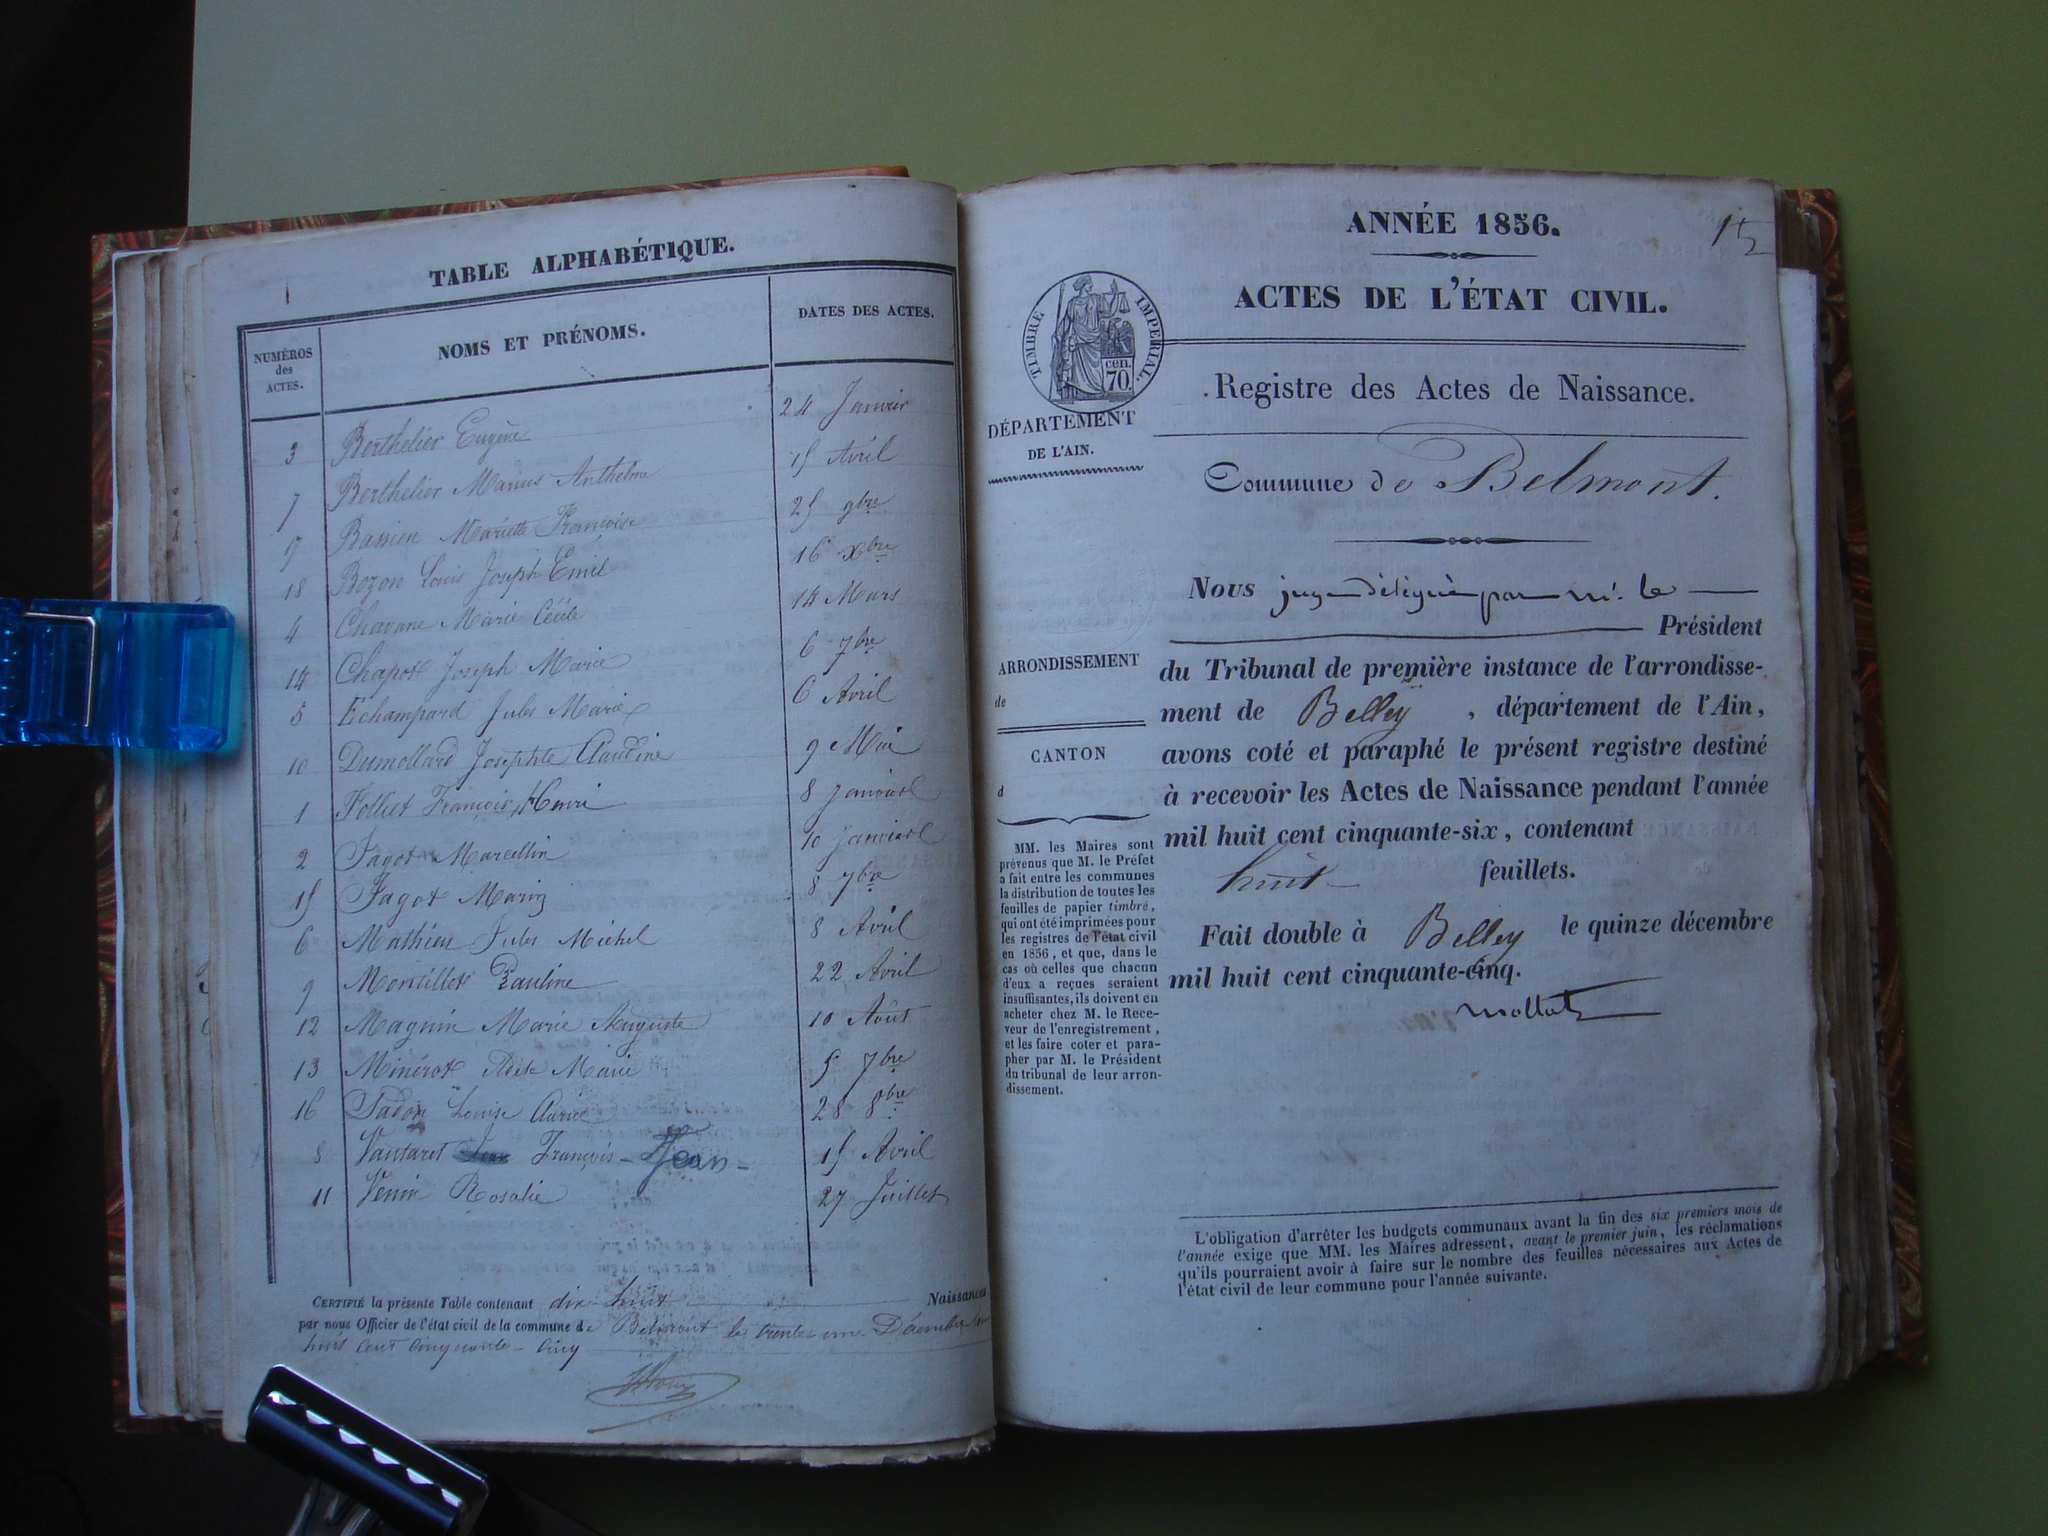 TABLE ALPHABÉTIQUE.
NUMÉROS des ACTES. NOMS ET PRÉNOMS. DATES DES ACTES.
3 Berthelier Eugène 24 Janvier
7 Berthelier Marius Anthelme 15 Avril
17 Bassieu Mariette Françoise 25 9bre
18 Bozon Louis Joseph Emil 16 Xbre
4 Chavane Marie Cécile 14 Mars
14 Chapot Joseph Marie 6 7bre
5 Echampard Jules Marie 6 Avril
10 Dumollard Josephte Claudine 9 Mai
1 Folliet François Henri 8 janvier
2 Jagot Marcellin 10 janvier
15 Jagot Marie 8 7bre
6 Mathieu Jules Michel 8 Avril
9 Montillet Pauline 22 Avril
12 Magnin Marie Auguste 10 Août
13 Minérot Marie 5 7bre
16 Louise 28 8bre
8 Vautaret François - Jean - 15 Avril
11 Venin Rosalie 27 Juillet
CERTIFIÉ la présente Table contenant dix-huit Naissances
par nous Officier de l'état civil de la commune de Belmont le trente un Décembre
huit cent cinquante-cinq
ANNÉE 1856.
ACTES DE L'ÉTAT CIVIL.
TIMBRE IMPERIAL.
cen. 70.
Registre des Actes de Naissance.
DÉPARTEMENT
DE L'AIN.
Commune de Belmont.
Nous juge délégué par mr. le
Président
du Tribunal de première instance de l'arrondisse-
ment de Belley, département de l'Ain,
avons coté et paraphé le présent registre destiné
à recevoir les Actes de Naissance pendant l'année
mil huit cent cinquante-six, contenant
huit feuillets.
Fait double à Belley le quinze décembre
mil huit cent cinquante-cinq.
ARRONDISSEMENT
de
CANTON
d
MM. les Maires sont
prévenus que M. le Préfet
a fait entre les communes
la distribution de toutes les
feuilles de papier timbré,
qui ont été imprimées pour
les registres de l'état civil
en 1856, et que, dans le
cas où celles que chacun
d'eux a reçues seraient
insuffisantes, ils doivent en
acheter chez M. le Rece-
veur de l'enregistrement,
et les faire coter et para-
pher par M. le Président
du tribunal de leur arron-
dissement.
L'obligation d'arrêter les budgets communaux avant la fin des six premiers mois de
l'année exige que MM. les Maires adressent, avant le premier juin, les réclamations
qu'ils pourraient avoir à faire sur le nombre des feuilles nécessaires aux Actes de
l'état civil de leur commune pour l'année suivante.